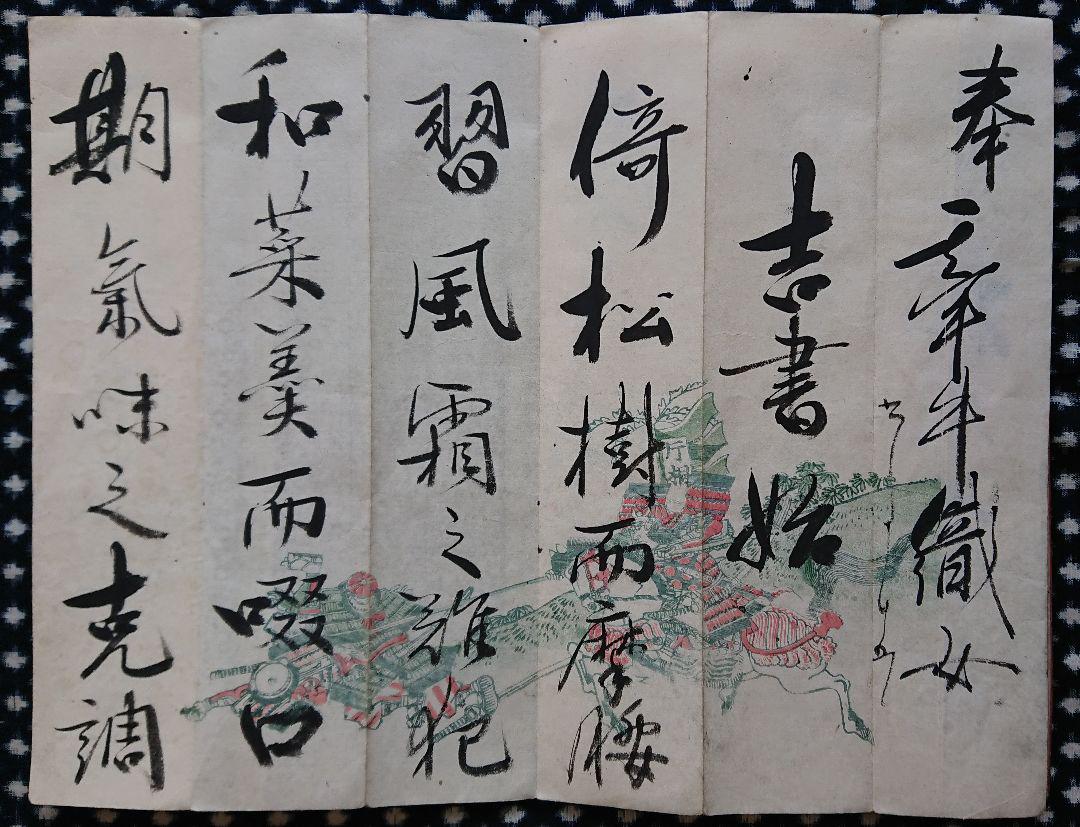 奉牽牛織女
吉書始
倚松樹而摩腰
習風霜之難犯
和菜羹而啜口
期氣味之克調